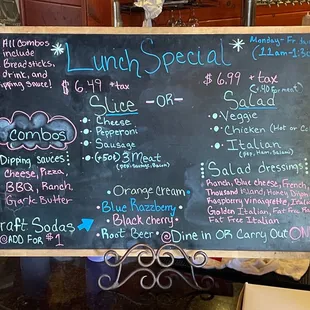 All Combos
include
Breadsticks,
drink, and
dipping sauce!
Lunch Special
Monday-Fri
(11am-1:3
$6.49 +tax
$6.99 + tax
Slice -OR- Salad
Combos
Cheese
Pepperoni
Sausage
(+50¢) 3 Meat
Veggie
Chicken (Hot or Co
Italian
(Pep, Ham, Salami)
Dipping sauces:
Cheese, Pizza,
BBQ, Ranch,
Garlic Butter
Salad dressings
Ranch, Blue cheese, French,
Thousand Island, Honey
Raspberry Vinaigrette, Itali
Golden Italian, Fat Fre
Fat Free Italian
Orange Cream
Blue Razzberry
Black cherry
Root Beer
raft Sodas
ADD FOR $1
Dine in OR Carry Out ON